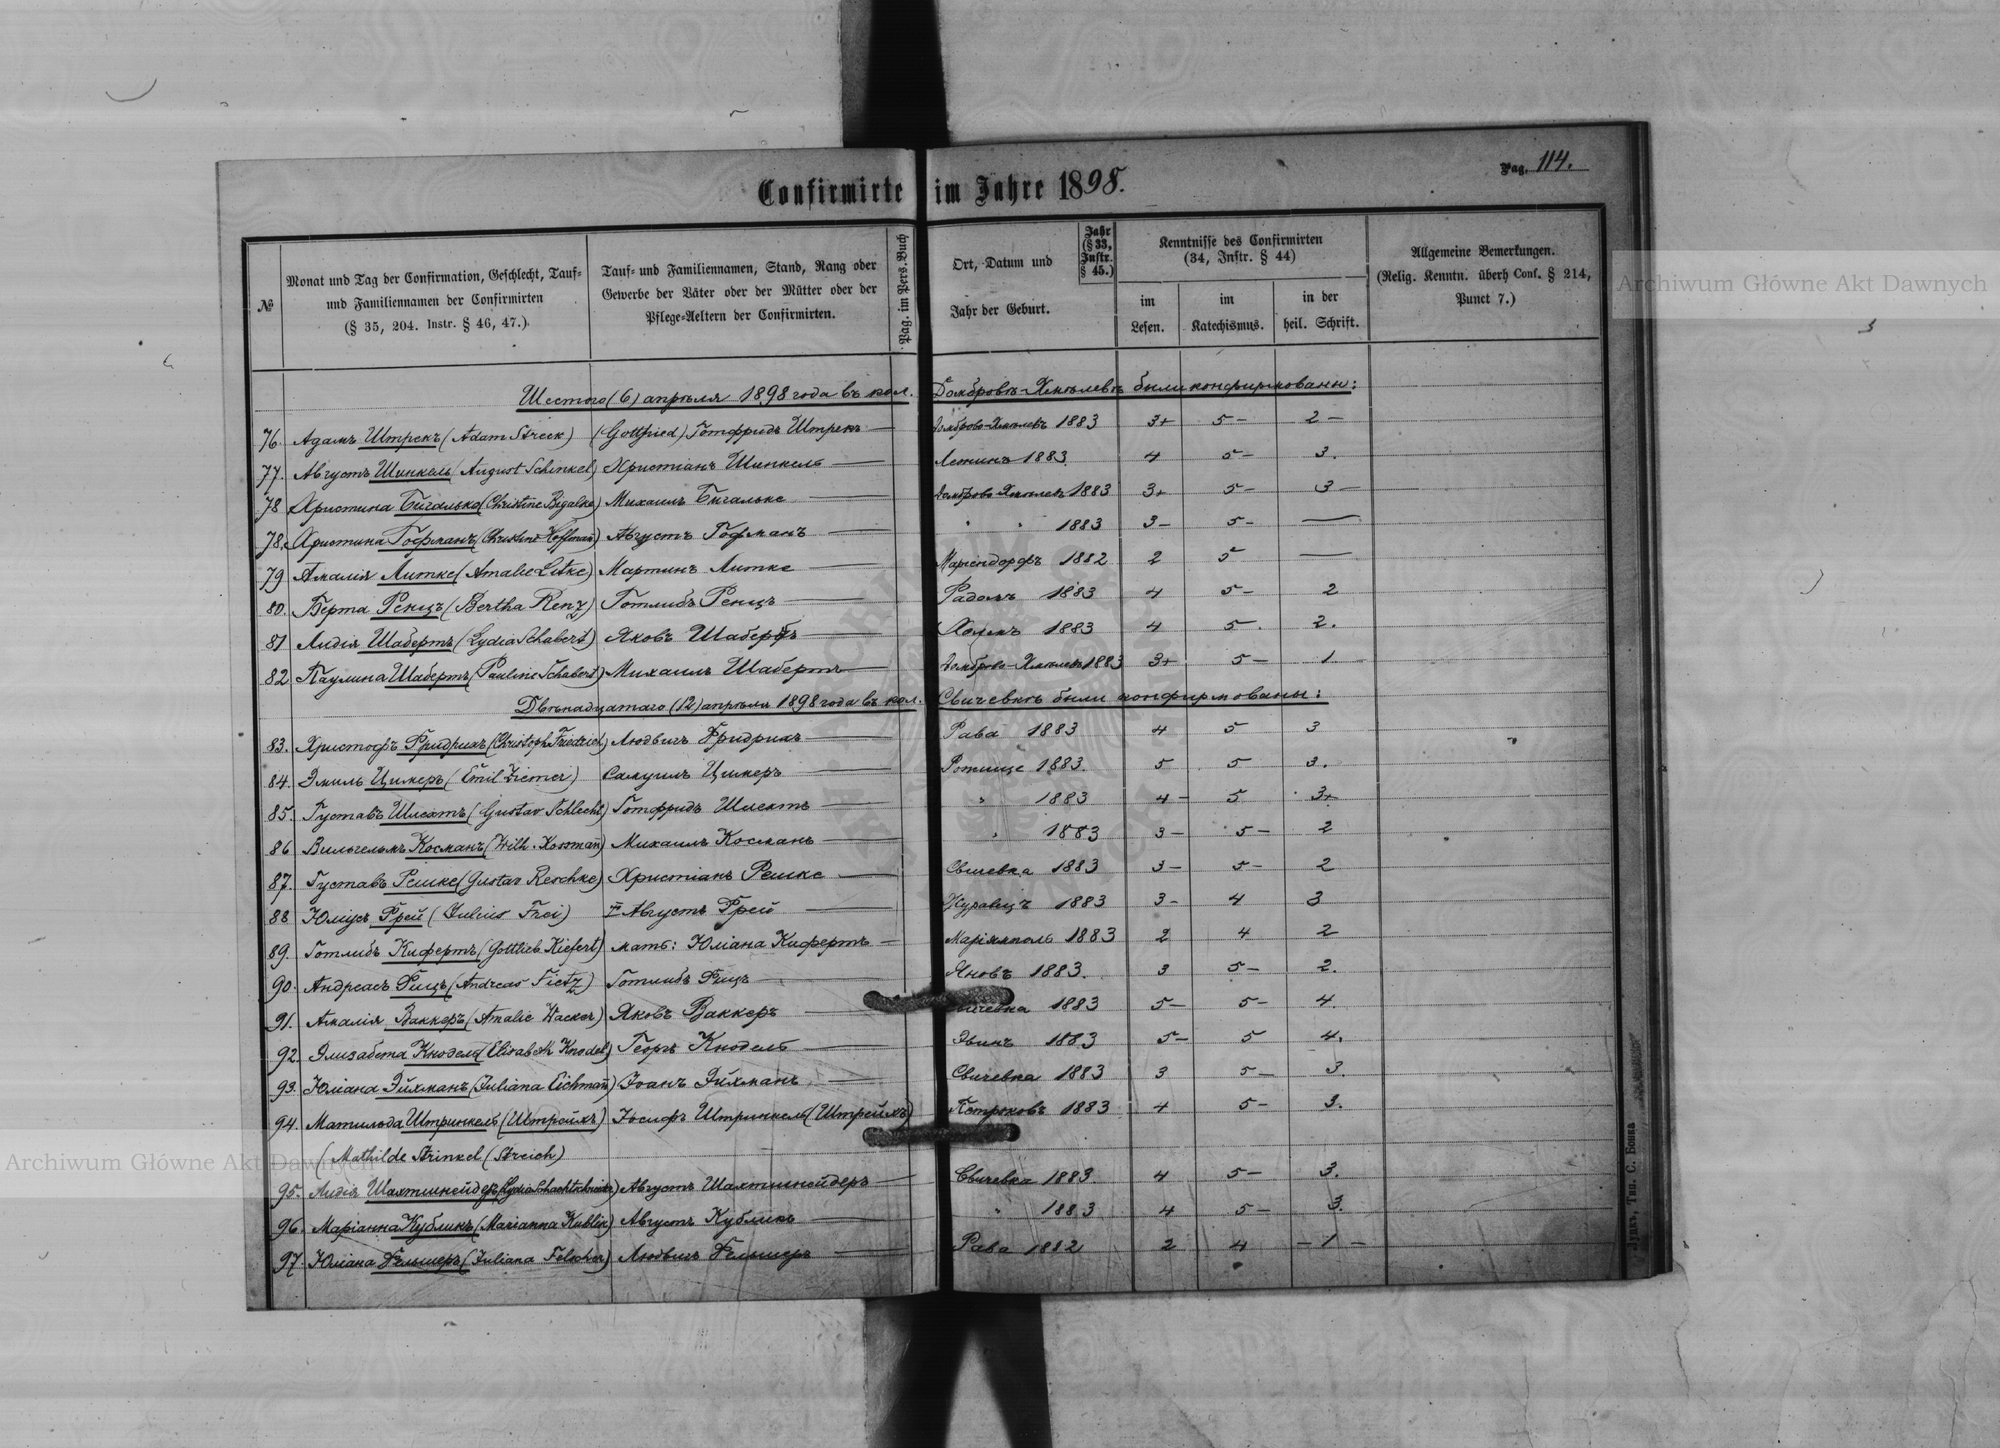 Confirmirte im Jahre 1898.
Pag. 114.
№
Monat und Tag der Confirmation, Geschlecht, Tauf-
und Familiennamen der Confirmirten
(§ 35, 204. Instr. § 46, 47.).
Tauf- und Familiennamen, Stand, Rang oder
Gewerbe der Väter oder der Mütter oder der
Pflege-Aeltern der Confirmirten.
Pag. im Pers.Buch
Ort, Datum und
Jahr der Geburt.
Jahr
(§ 33,
Instr.
§ 45.)
Kenntnisse des Confirmirten
(34, Instr. § 44)
im
Lesen.
im
Katechismus.
in der
heil. Schrift.
Allgemeine Bemerkungen.
(Relig. Kenntn. überh Conf. § 214,
Punct 7.)
Шестого (6) апрѣля 1898 года въ кол. Домбровѣ-Хмѣлевѣ были конфирмованы:
76. Адамъ Штрекъ (Adam Streck) (Gottfried) Готфридъ Штрекъ — Домброво-Хмѣлевъ 1883 3+ 5- 2-
77. Августъ Шинкель (August Schinkel) Христіанъ Шинкель — 1883 4 5- 3.
78 Христина Бигальке (Christine Bigalke) Михаилъ Бигальке — Домброво-Хмѣлевъ 1883 3+ 5- 3-
78. Христина Гофманъ (Christine Hoffman) Августъ Гофманъ — " " 1883 3- 5- —
79 Амалія Литке (Amalie Litke) Мартинъ Литке — Маріендорфъ 1882 2 5 —
80. Берта Ренцъ (Bertha Renz) Готлибъ Ренцъ — Радомъ 1883 4 5- 2
81 Лидія Шабертъ (Lydia Schabert) Яковъ Шабертъ — Холмъ 1883 4 5. 2.
82 Паулина Шабертъ (Pauline Schabert) Михаилъ Шабертъ — Домброво-Хмѣлевъ 1883 3+ 5- 1
Двѣнадцатаго (12) апрѣля 1898 года въ кол. Свичевкѣ были конфирмованы:
83. Христофъ Фридрихъ (Christoph Friedrich) Людвигъ Фридрихъ — Рава 1883 4 5 3
84. Эмиль Цимеръ (Emil Ziemer) Самуилъ Цимеръ — Рожище 1883. 5 5 3.
85. Густавъ Шлехтъ (Gustav Schlecht) Готфридъ Шлехтъ — " 1883 4- 5 3+
86 Вильгельмъ Косманъ (Wilh. Kossman) Михаилъ Косманъ — " 1883 3- 5- 2
87. Густавъ Решке (Gustav Reschke) Христіанъ Решке — Свичевка 1883 3- 5- 2
88 Юліусъ Фрей (Julius Frei) Августъ Фрей — Журавецъ 1883 3- 4 3
89. Готлибъ Кифертъ (Gottlieb Kiefert) мать: Юліана Кифертъ — Маріямполь 1883 2 4 2
90. Андреасъ Фицъ (Andreas Fietz) Готлибъ Фицъ — Яновъ 1883. 3 5- 2.
91. Амалія Ваккеръ (Amalie Wacker) Яковъ Ваккеръ — Свичевка 1883 5- 5- 4.
92. Элизабета Кнодель (Elisabeth Knodel) Георгъ Кнодель — 1883 5- 5 4.
93. Юліана Эйхманъ (Juliana Eichman) Іоанъ Эйхманъ — Свичевка 1883 3 5- 3.
94. Матильда Штринкель (Штрейхъ) Іосифъ Штринкель (Штрейхъ) Петроковъ 1883 4 5- 3.
(Mathilde Strinkel (Streich)
95. Лидія Шахтшнейдеръ (Lydia Schachtschneider) Августъ Шахтшнейдеръ — Свичевка 1883. 4 5- 3.
96. Маріанна Кубликъ (Marianna Kublik) Августъ Кубликъ — " 1883 4 5- 3.
97. Юліана Фельшеръ (Juliana Felscher) Людвигъ Фельшеръ — Рава 1882 2 4 -1-
Луцкъ, Тип. С. Бонка
Archiwum Główne Akt Dawnych
Archiwum Główne Akt Dawnych